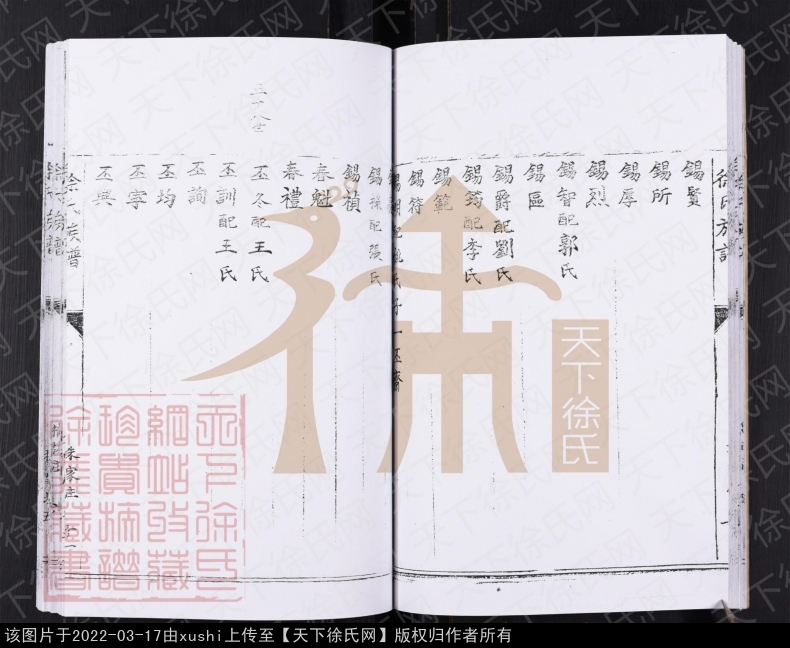 徐氏族譜
錫賢
錫所
錫厚
錫烈
錫智配郭氏
錫區
錫爵配劉氏
錫筠配李氏
錫範
錫符
錫徠配張氏
錫禎
春魁
春禮
三十八世
丕冬配王氏
丕訓配王氏
丕詢
丕均
丕寧
丕興
徐氏族譜
朱家庄
天下徐氏
天下徐氏
網站收藏
珍貴族譜
徐雁藏書
天下徐氏网
该图片于2022-03-17由xushi上传至【天下徐氏网】版权归作者所有